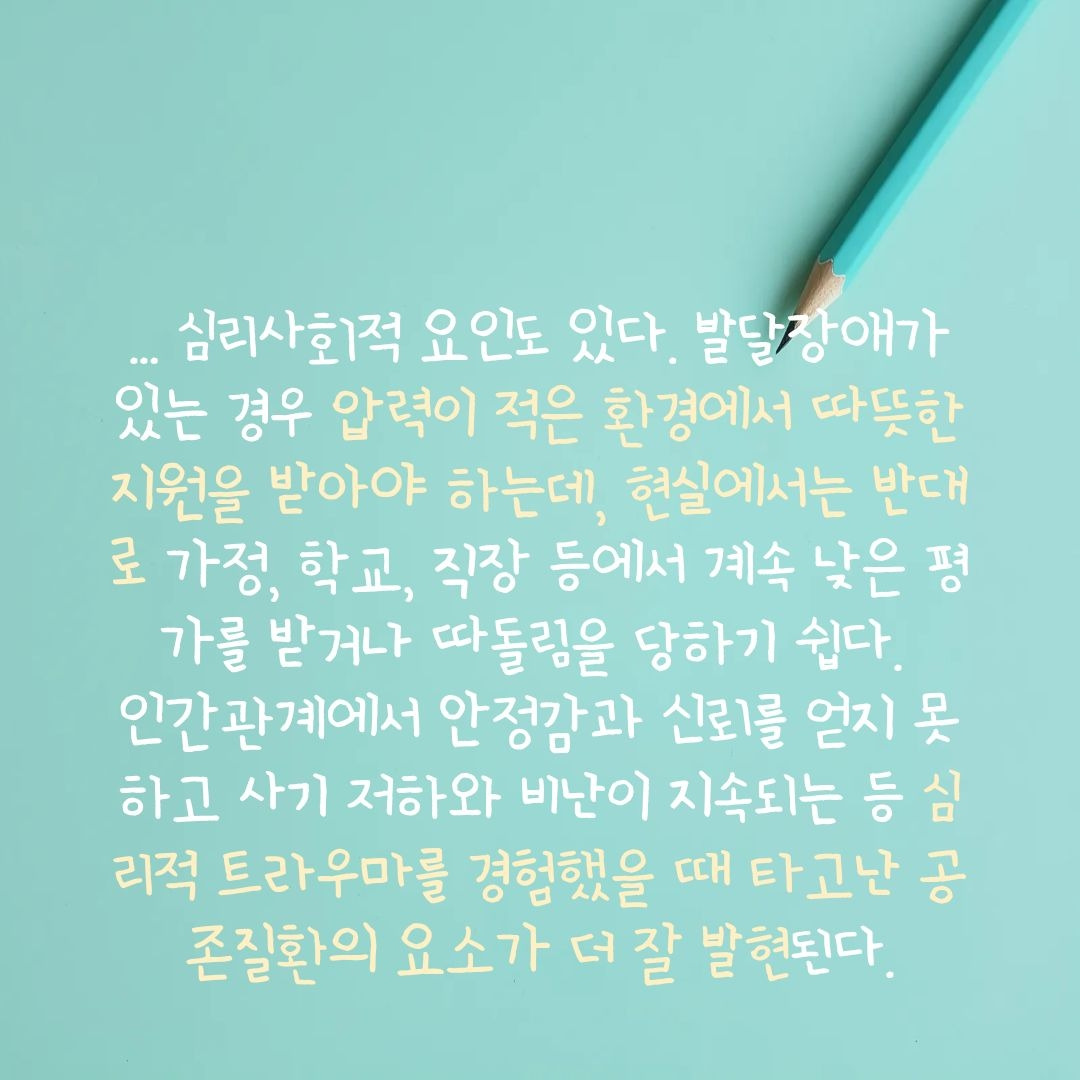 ... 심리사회적 요인도 있다. 발달장애가
있는 경우 압력이 적은 환경에서 따뜻한
지원을 받아야 하는데, 현실에서는 반대
로 가정, 학교, 직장 등에서 계속 낮은 평
가를 받거나 따돌림을 당하기 쉽다.
인간관계에서 안정감과 신뢰를 얻지 못
하고 사기 저하와 비난이 지속되는 등 심
리적 트라우마를 경험했을 때 타고난 공
존질환의 요소가 더 잘 발현된다.